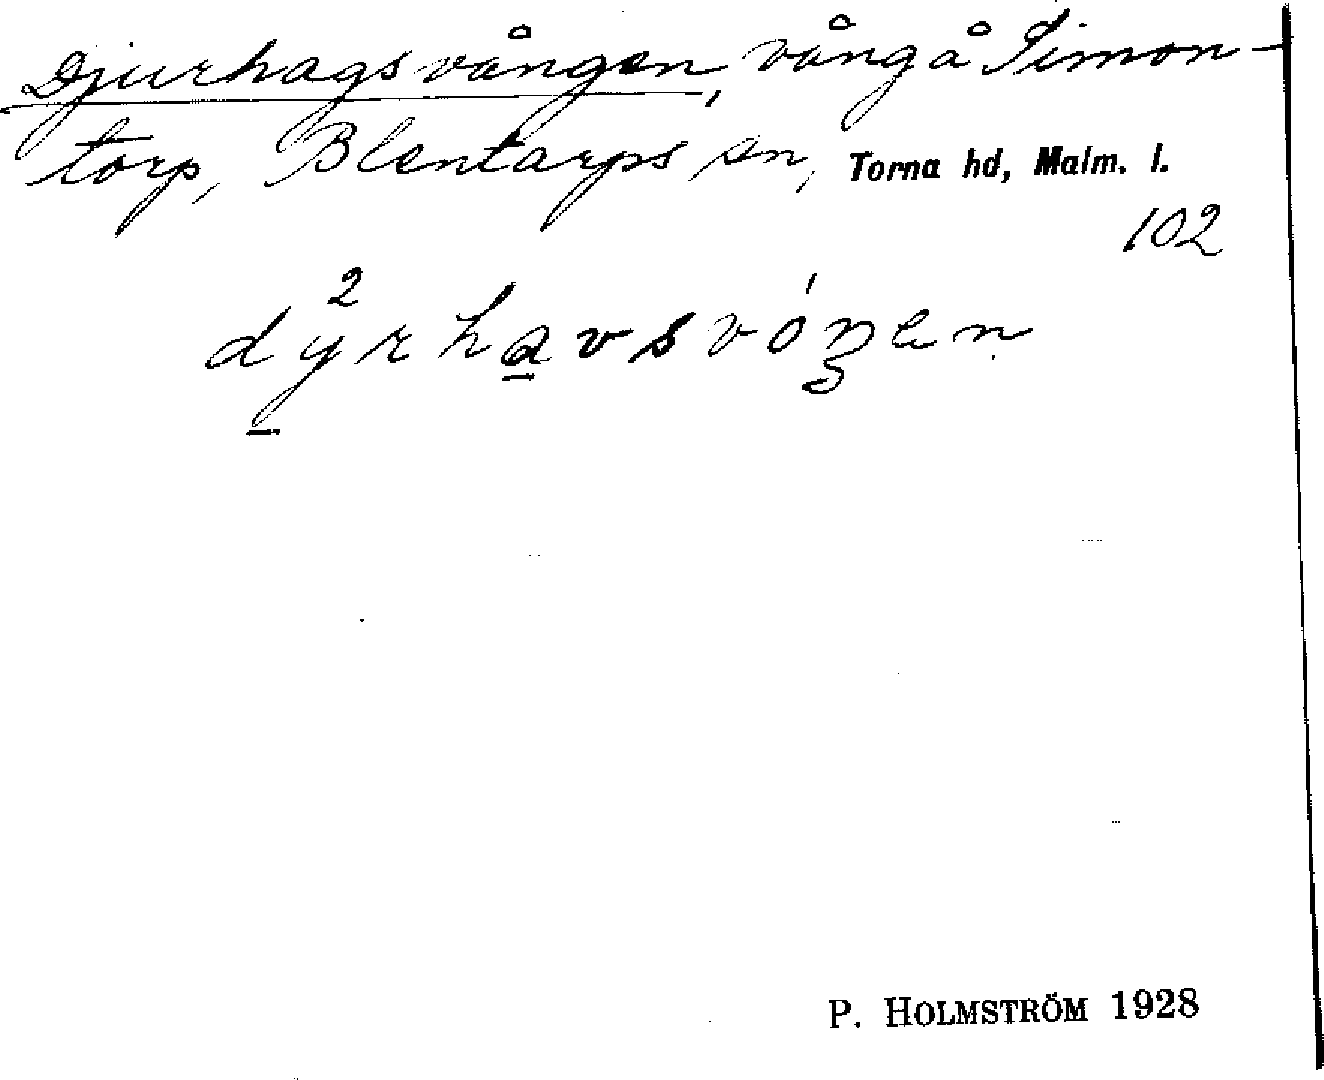 Djurhagsvången, vång å Simon-
torp, Blentarps sn, Torna hd, Malm. l.
102
dy̲²rha̲vsvóŋen
P. HOLMSTRÖM 1928